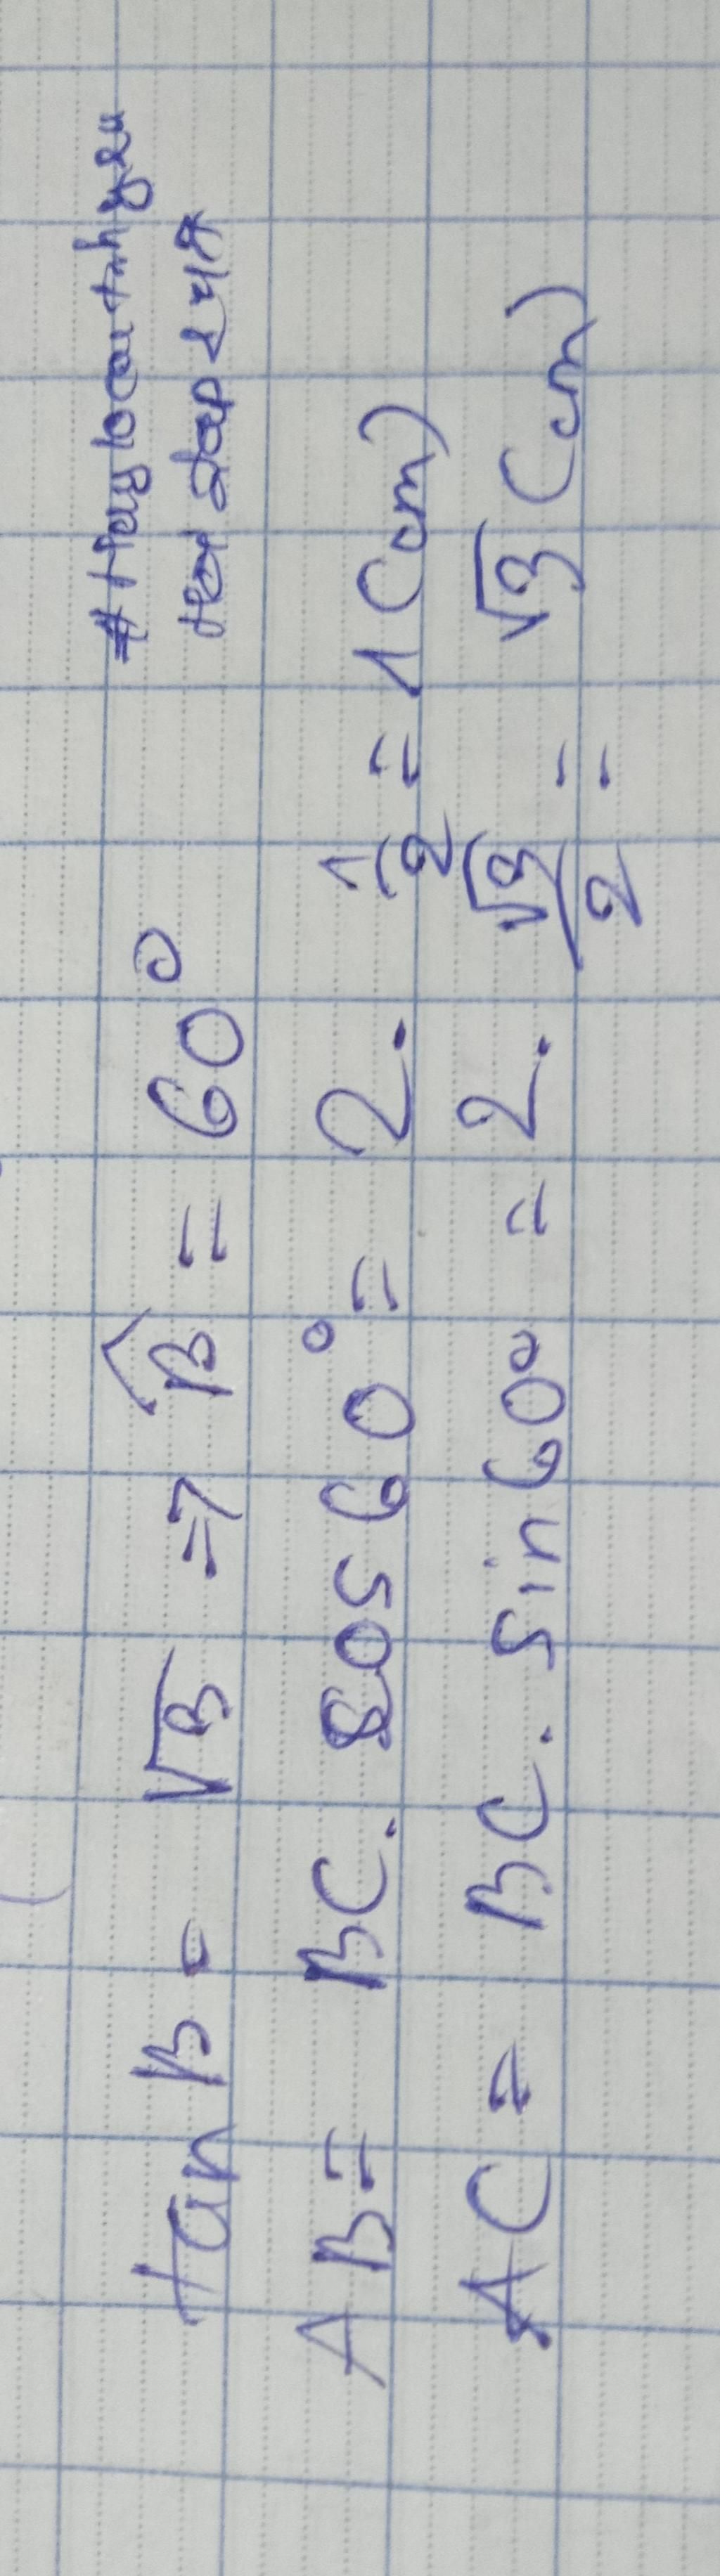 tan B = √3 => B̂ = 60°
AB = BC. cos 60° = 2. 1/2 = 1 (cm)
AC = BC. sin 60° = 2. √3/2 = √3 (cm)